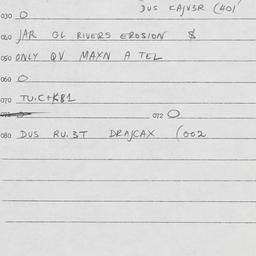 DUS KAJV3R (401
030 O
040 JAR GL RIVERS EROSION $
050 ONLY QV MAXN A TEL
060 O
070 TU.C+K81
072 O
080 DUS RU.3T DRAJCAX (002